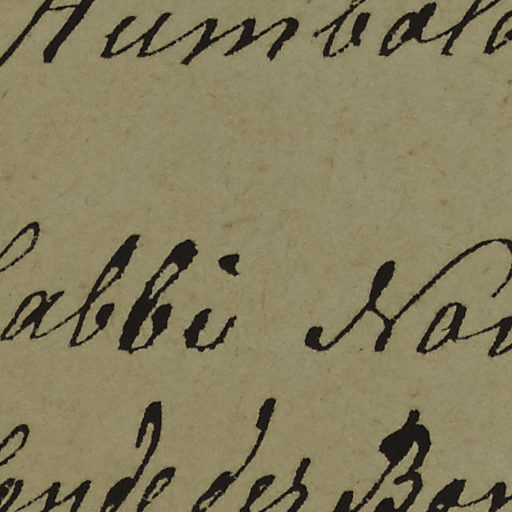 Humbold
abbi Nor
ande der Bar